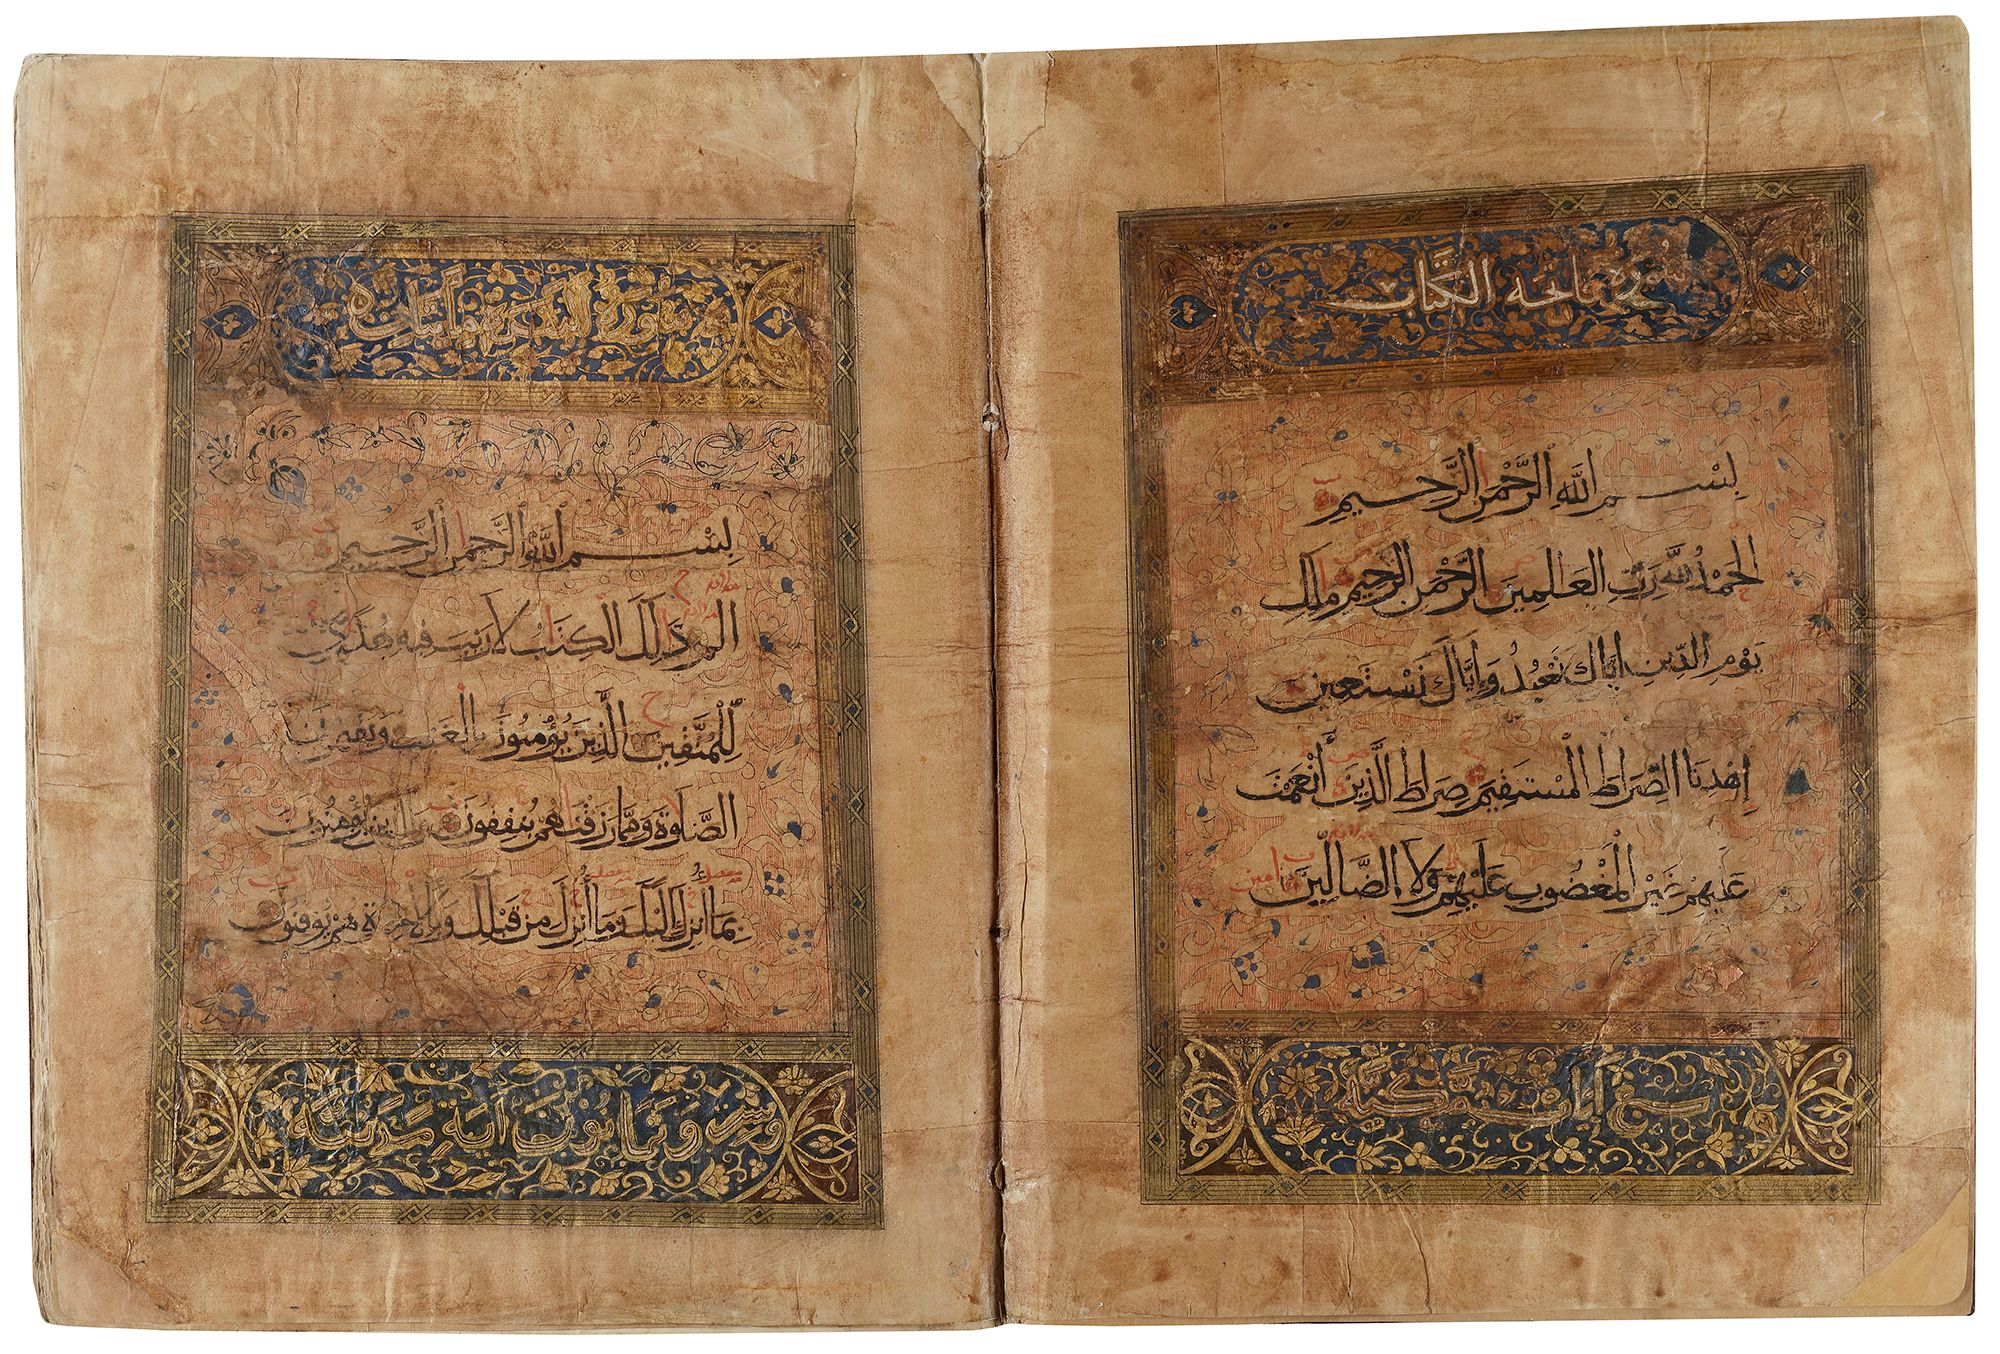 سورة فاتحة الكتاب
بِسْمِ اللَّهِ الرَّحْمٰنِ الرَّحِيمِ
الحَمْدُ لِلَّهِ رَبِّ العَالَمِينَ الرَّحْمٰنِ الرَّحِيمِ مٰلِكِ
يَوْمِ الدِّينِ اِيَّاكَ نَعْبُدُ وَاِيَّاكَ نَسْتَعِينُ
اِهْدِنَا الصِّرَاطَ الْمُسْتَقِيمَ صِرَاطَ الَّذِينَ أَنْعَمْتَ
عَلَيْهِمْ غَيْرِ الْمَغْضُوبِ عَلَيْهِمْ وَلَا الضَّالِّينَ
امين
سبع ايات مكية
سورة البقرة مائتان
بِسْمِ اللَّهِ الرَّحْمٰنِ الرَّحِيمِ
الم ذَالِكَ الْكِتَابُ لَا رَيْبَ فِيهِ هُدًى
لِّلْمُتَّقِينَ الَّذِينَ يُؤْمِنُونَ بِالْغَيْبِ وَيُقِيمُونَ
الصَّلٰوةَ وَمِمَّا رَزَقْنَاهُمْ يُنْفِقُونَ وَالَّذِينَ يُؤْمِنُونَ
بِمَا اُنْزِلَ اِلَيْكَ وَمَا أُنْزِلَ مِنْ قَبْلِكَ وَبِالْاخِرَةِ هُمْ يُوقِنُونَ
وست وثمانون آية مدنية